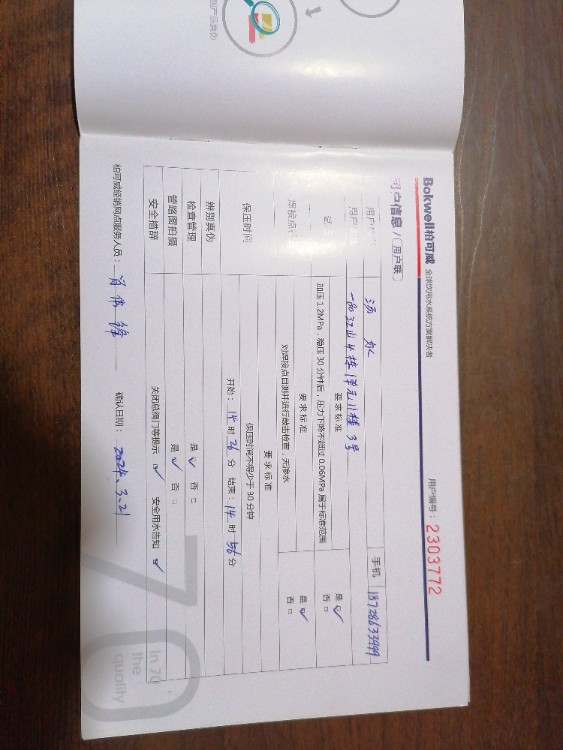 Bokwell柏可威 全球饮用水系统方案解决者
用户编号：2303772
用户信息/（用户联）
手机 18728633999
一品江山4栋1单元11楼3号
要求标准
加压1.2MPa，稳压30分钟后，压力下降不超过0.06MPa属于标准范围
是☑
否□
焊接点
要求标准
对焊接点目测并进行敲击检查，无渗水
是☑
否□
保压时间
要求标准
保压时间不得少于30分钟
开始：14时26分 结束：14时56分
辨别真伪
是☑ 否□
检查管理
管路图拍摄
是☑ 否□
安全措辞
关闭总阀门等提示☑ 安全用水告知☑
柏可威经销网点服务人员：
确认日期：2024.3.21
70
in 70
the
quality